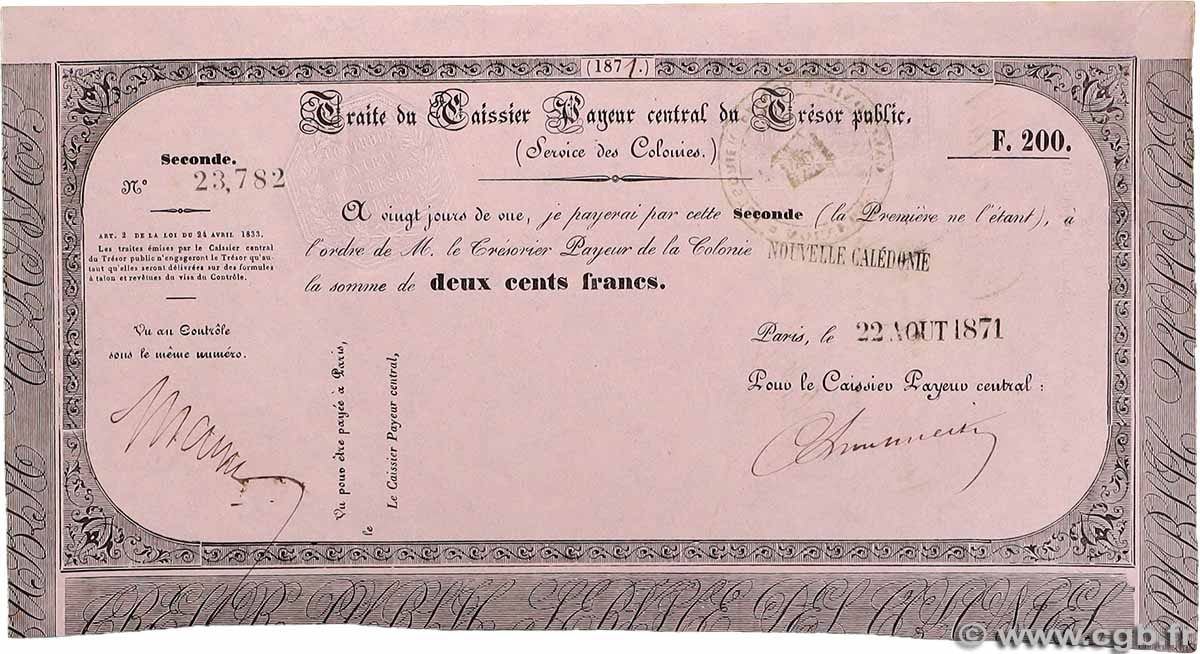 (1871.)
Traite du Caissier Payeur central du Trésor public,
(Service des Colonies.)
F. 200.
Seconde.
N° 23,782
ART. 2 DE LA LOI DU 24 AVRIL 1833.
Les traites émises par le Caissier central
du Trésor public n'engageront le Trésor qu'au-
tant qu'elles seront délivrées sur des formules
à talon et revêtues du visa du Contrôle.
Vu au Contrôle
sous le même numéro.
A vingt jours de vue, je payerai par cette Seconde (la Première ne l'étant), à
l'ordre de M. le Trésorier Payeur de la Colonie NOUVELLE CALÉDONIE
la somme de deux cents francs.
Paris, le 22 AOUT 1871
Pour le Caissier Payeur central :
Vu pour être payée à Paris,
le
Le Caissier Payeur central,
© www.cgb.fr